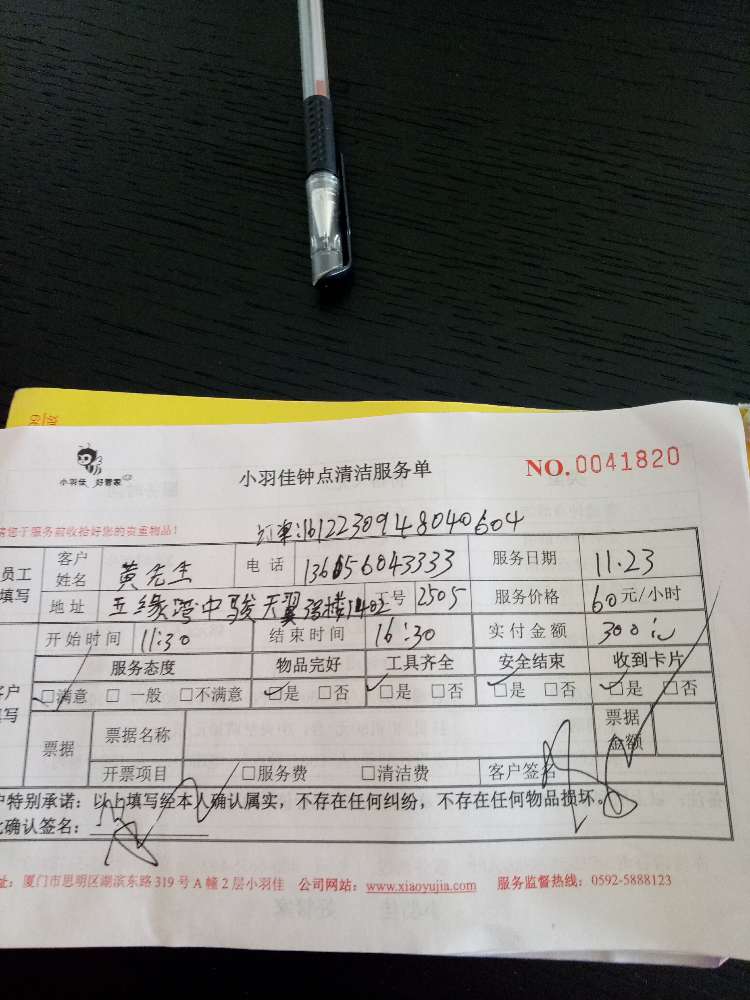 小羽佳 好管家
小羽佳钟点清洁服务单
NO.0041820
请您于服务前收拾好您的贵重物品!
订单:1612230948040604
员工填写 客户姓名 黄先生 电话 13656043333 服务日期 11.23
地址 五缘湾中骏天翼 楼1402 工号 2505 服务价格 60元/小时
开始时间 11:30 结束时间 16:30 实付金额 300元
服务态度 物品完好 工具齐全 安全结束 收到卡片
☑满意 □一般 □不满意 ☑是 □否 ☑是 □否 ☑是 □否 ☑是 □否
票据 票据名称 票据金额
开票项目 □服务费 □清洁费 客户签名
户特别承诺:以上填写经本人确认属实,不存在任何纠纷,不存在任何物品损坏。
此确认签名:
址:厦门市思明区湖滨东路319号A幢2层小羽佳 公司网站:www.xiaoyujia.com 服务监督热线:0592-5888123